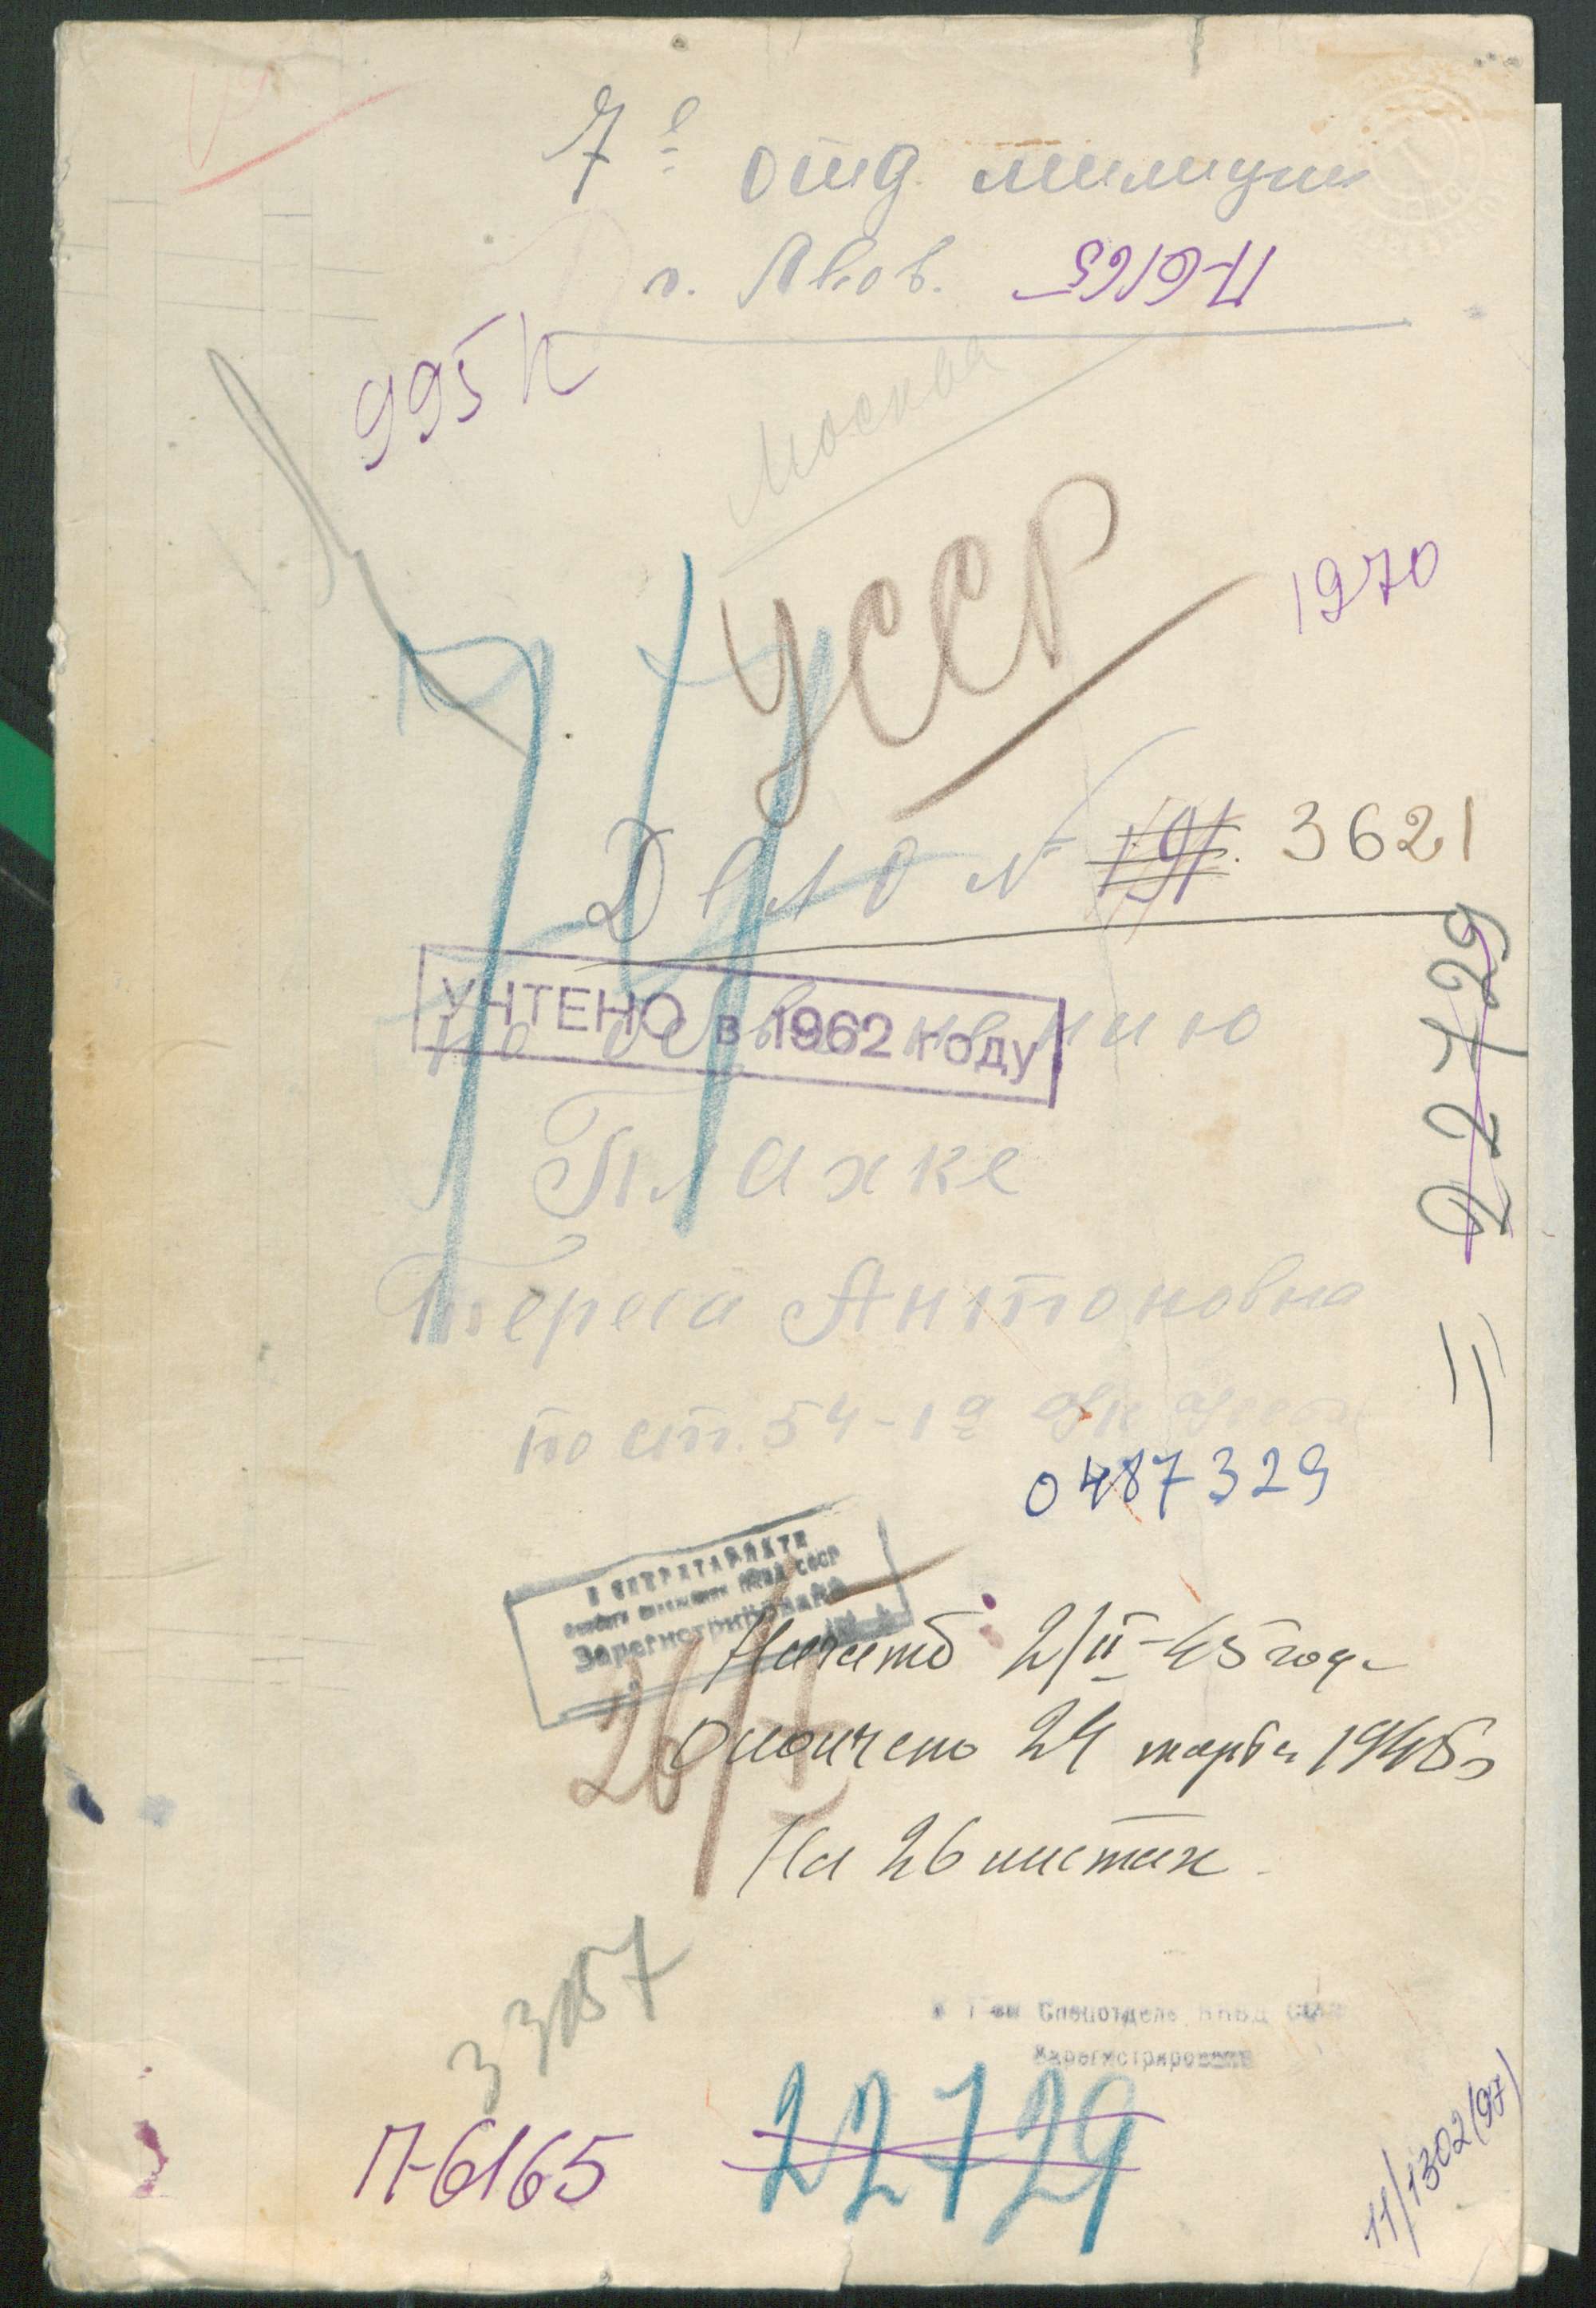 7е отд. милиции
г. Львов.
П-6165
995 К
Москва
УССР
1970
Дело № 191. 3621
22729
УЧТЕНО в 1962 году
по обвинению
Плахке
Тереса Антоновна
по ст. 54-1а УК УССР
0487329
В СЕКРЕТАРИАТЕ
Особого совещания НКВД СССР
Зарегистрировано
26/I
Начато 2/II-45 года
Окончено 24 марта 1945 г
На 26 листах
3357
в 1-ом Спецотделе НКВД СССР
Зарегистрировано
П-6165
22729
11/1302(97)